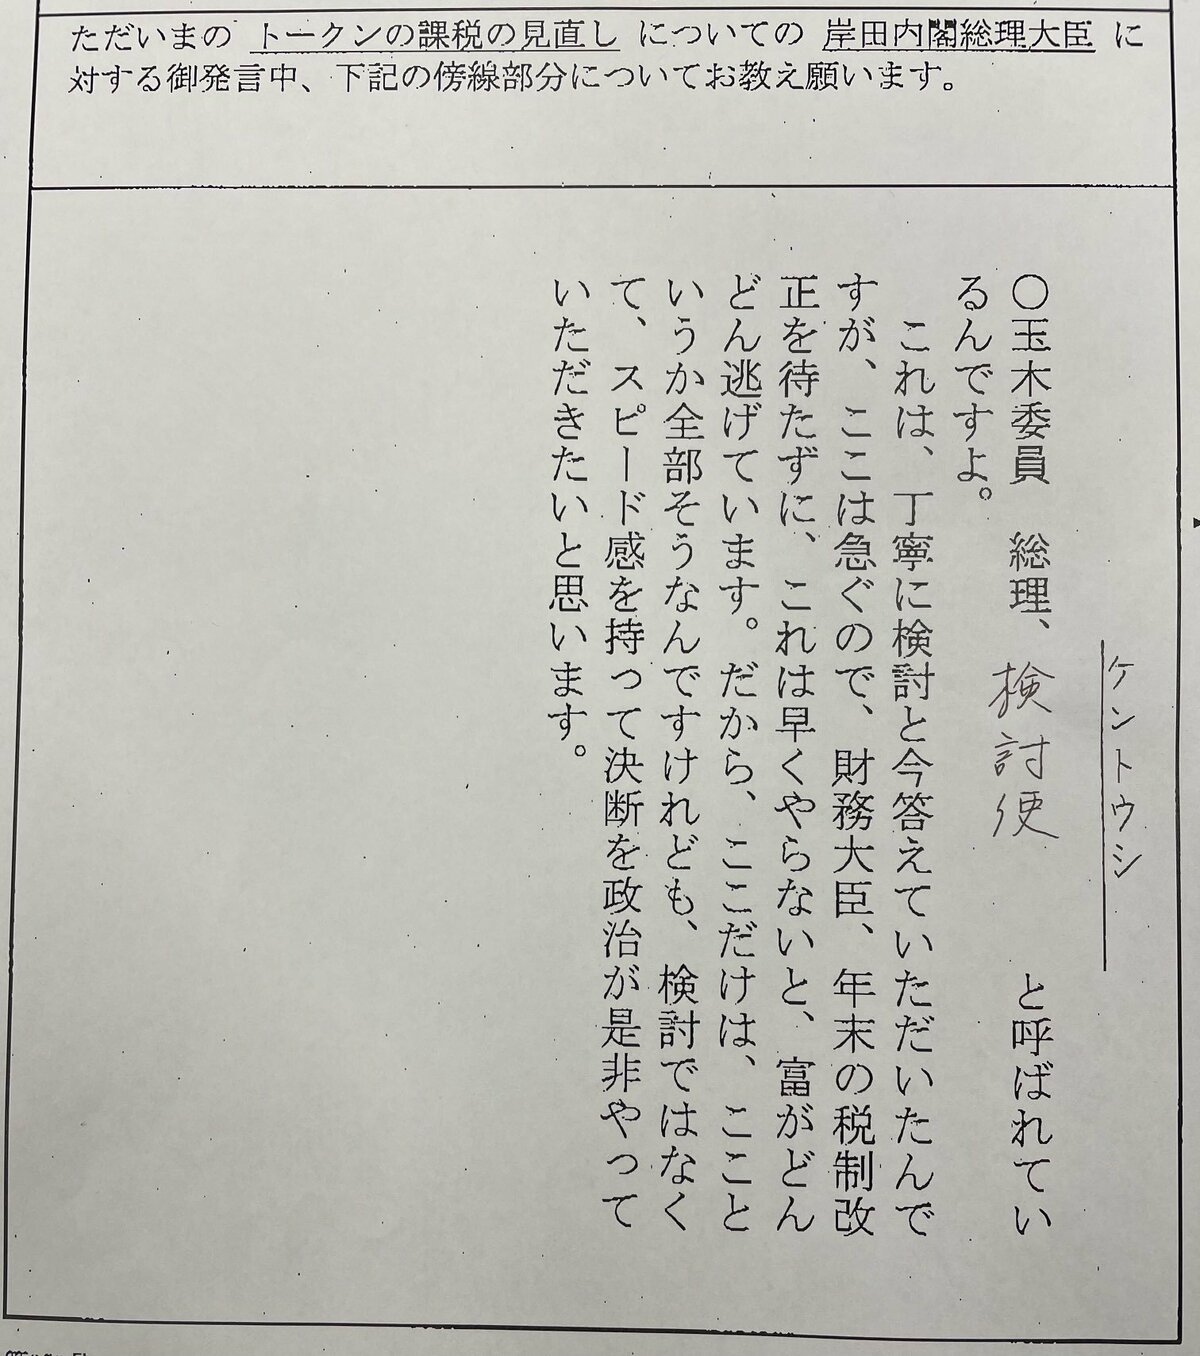 ただいまの トークンの課税の見直し についての 岸田内閣総理大臣 に
対する御発言中、下記の傍線部分についてお教え願います。
ケントウシ
○玉木委員　総理、検討使と呼ばれてい
るんですよ。
これは、丁寧に検討と今答えていただいたんで
すが、ここは急ぐので、財務大臣、年末の税制改
正を待たずに、これは早くやらないと、富がどん
どん逃げています。だから、ここだけは、ここと
いうか全部そうなんですけれども、検討ではなく
て、スピード感を持って決断を政治が是非やって
いただきたいと思います。